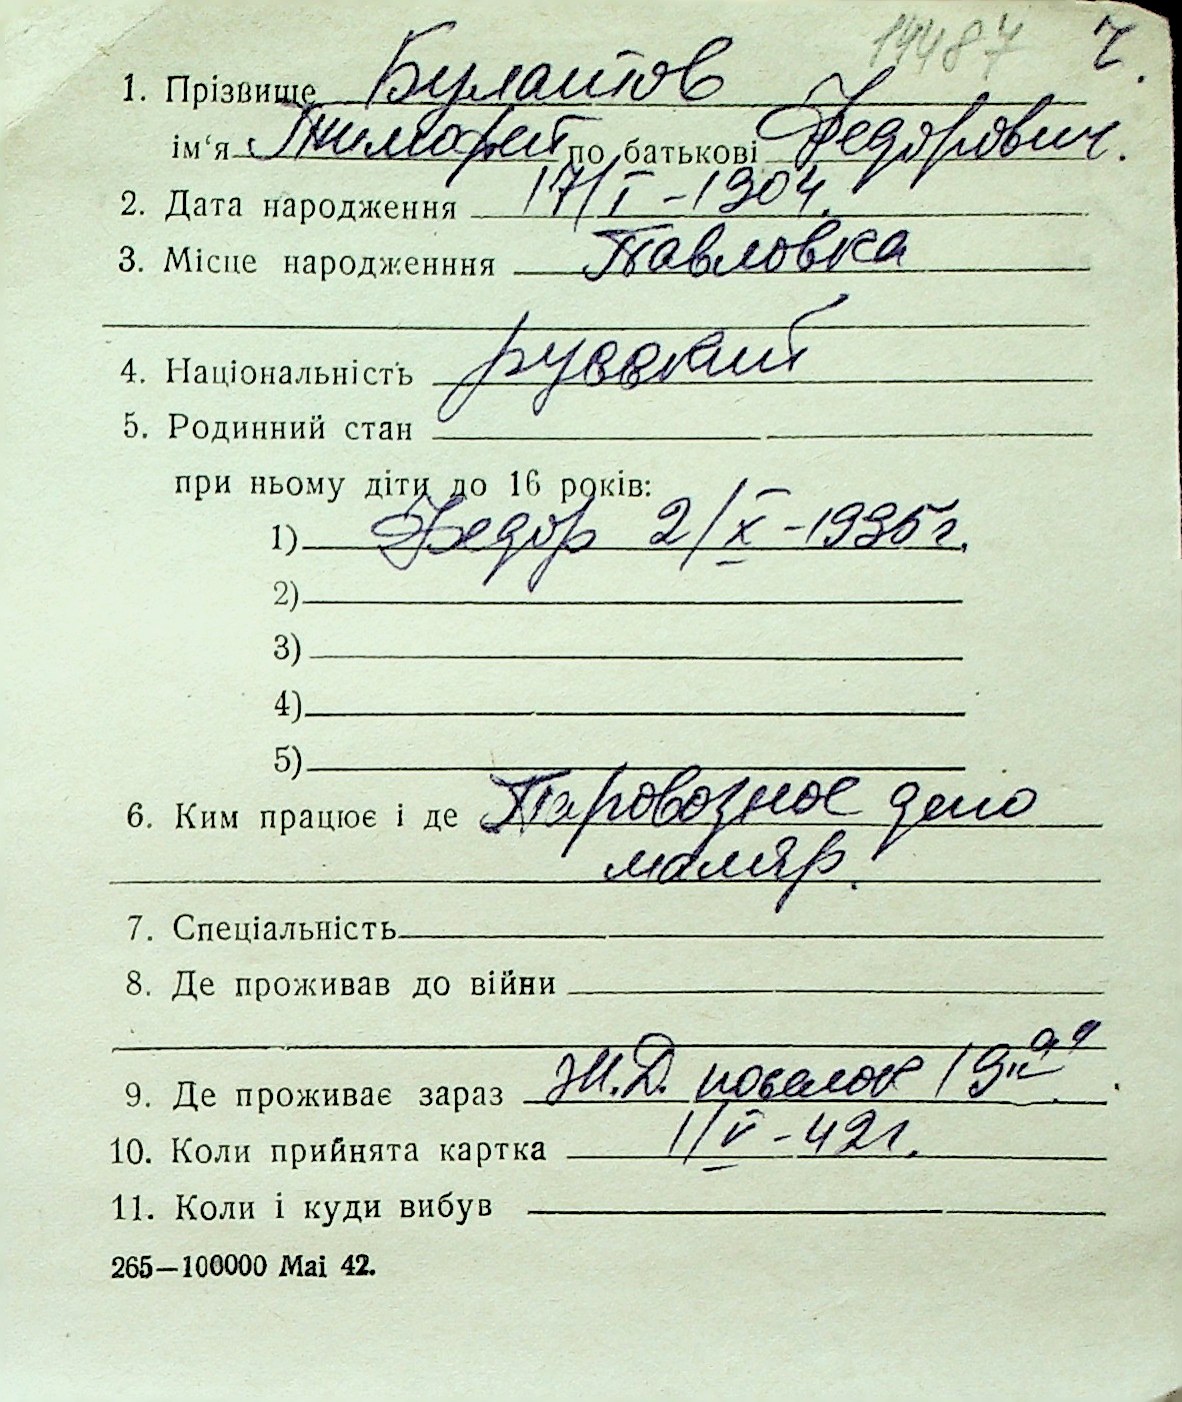 14487 Ч.
1. Прізвище Булаитов
ім'я Тимофей по батькові Федорович.
2. Дата народження 17/I - 1904.
3. Місце народженння Павловка
4. Національність русский
5. Родинний стан
при ньому діти до 16 років:
1) Федор 2/X - 1935 г.
2)
3)
4)
5)
6. Ким працює і де Паровозное депо
маляр.
7. Спеціальність
8. Де проживав до війни
9. Де проживає зараз Ж.Д. поселок 19
10. Коли прийнята картка 1/V - 42 г.
11. Коли і куди вибув
265—100000 Маі 42.